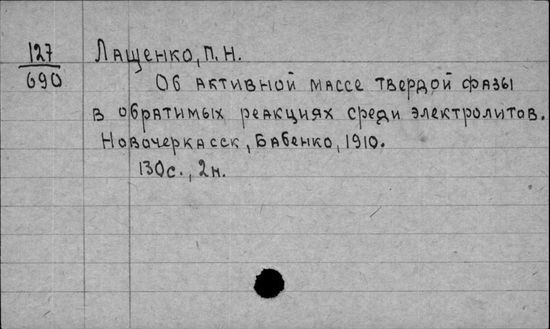 127
690
Лащенко, П. Н.
Об активной массе твердой фазы
в обратимых реакциях среди электролитов.
Новочеркасск, Бабенко, 1910.
130с., 2н.